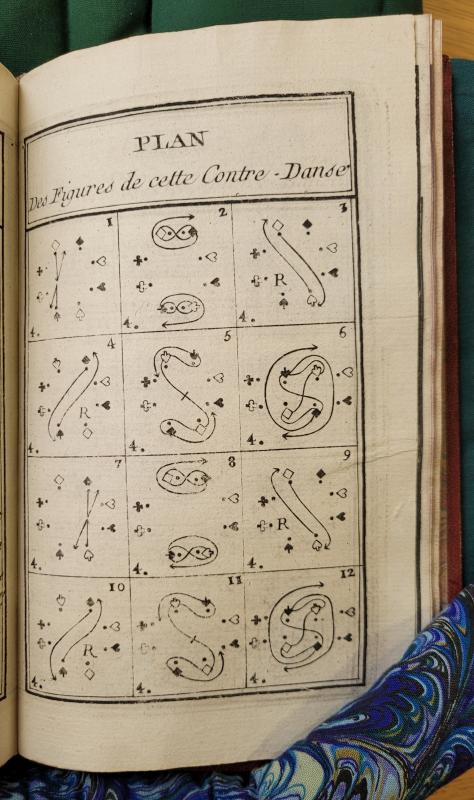 PLAN
Des Figures de cette Contre-Danse
1 2 3
R
4. 4. 4.
4 5 6
R
4. 4. 4.
7 8 9
R
4. 4. 4.
10 11 12
R
4. 4. 4.